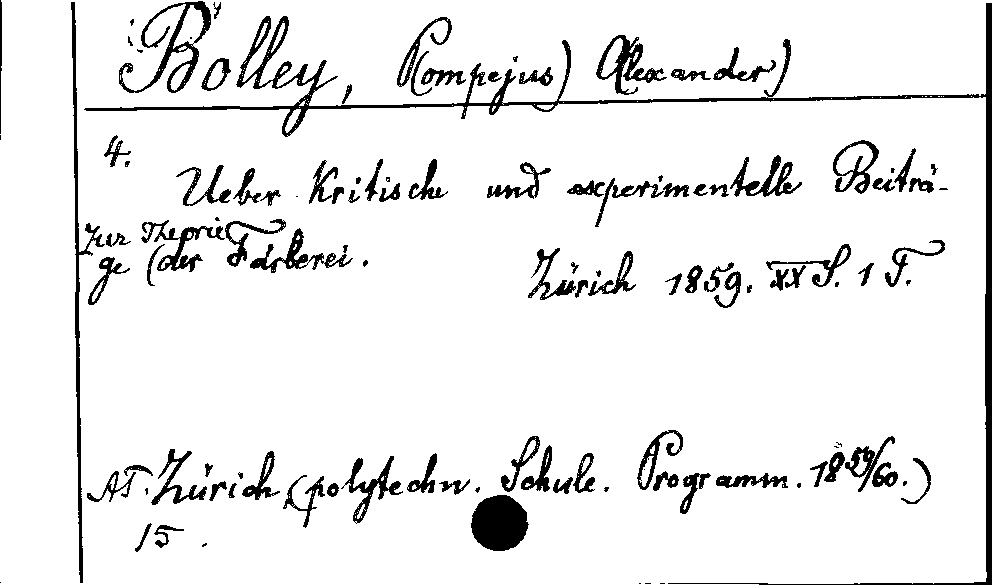 Bolley, P(ompejus) A(lexander)
4.
Ueber Kritische und experimentelle Beiträ-
zur Theorie
ge (der Färberei.
Zürich 1859. XX S. 1 T.
AT. Zürich (polytechn. Schule. Programm. 1859/60.)
15.